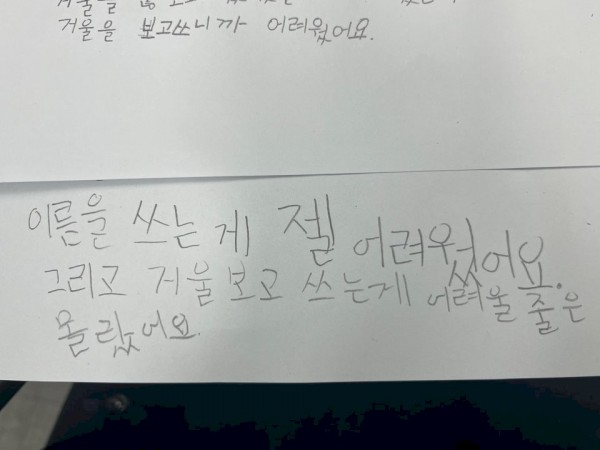 거울을
거울을 보고쓰니까 어려웠어요.
이름을 쓰는 게 젤 어려웠어요.
그리고 거울보고 쓰는게 어려울 줄은
몰랐어요.